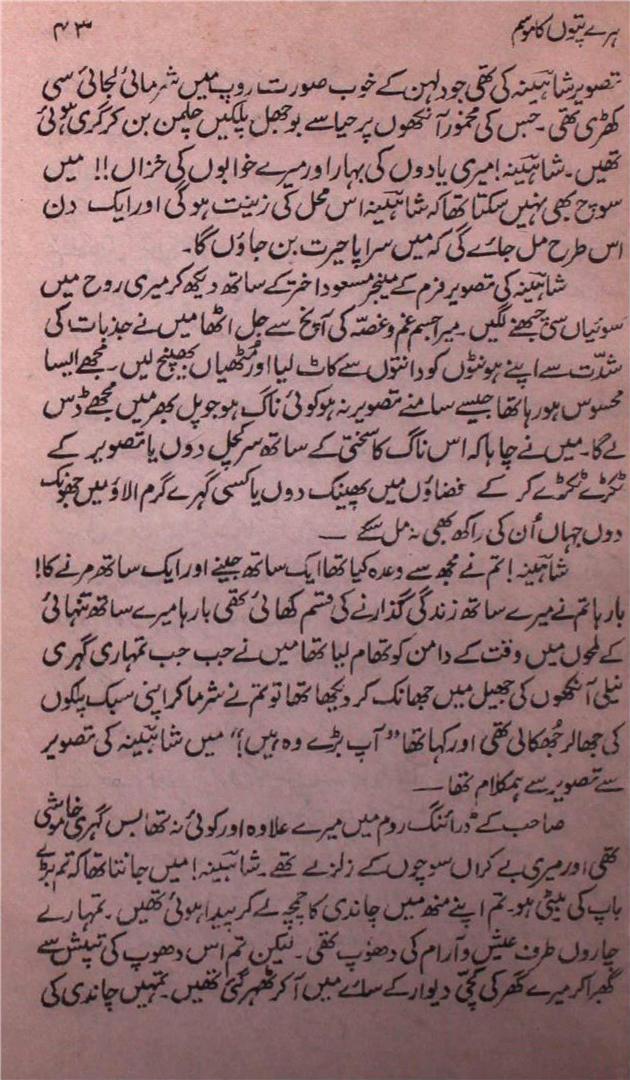 ہرے پتوں کا موسم
۴۳
تصویر شاہینہ کی تھی جو دلہن کے خوب صورت روپ میں شرمائی لجائی سی
کھڑی تھی۔ جس کی مخمور آنکھوں پر حیا سے بوجھل پلکیں چلمن بن کر گری ہوئی
تھیں۔ شاہینہ! میری یادوں کی بہار اور میرے خوابوں کی خزاں!! میں
سوچ بھی نہیں سکتا تھا کہ شاہینہ اس محل کی زینت ہو گی اور ایک دن
اس طرح مل جائے گی کہ میں سراپا حیرت بن جاؤں گا۔
شاہینہ کی تصویر فرم کے منیجر مسعود اختر کے ساتھ دیکھ کر میری روح میں
سوئیاں سی چبھنے لگیں۔ میرا جسم غم و غصہ کی آنچ سے جل اٹھا میں نے جذبات کی
شدّت سے اپنے ہونٹوں کو دانتوں سے کاٹ لیا اور مُٹھیاں بھینچ لیں۔ مجھے ایسا
محسوس ہو رہا تھا جیسے سامنے تصویر نہ ہو کوئی ناگ ہو جو پل بھر میں مجھے ڈس
لے گا۔ میں نے چاہا کہ اس ناگ کا سختی کے ساتھ سر کچل دوں یا تصویر کے
ٹکڑے ٹکڑے کر کے فضاؤں میں پھینک دوں یا کسی گہرے گرم الاؤ میں جھونک
دوں جہاں اُن کی راکھ بھی نہ مل سکے ــ
شاہینہ! تم نے مجھ سے وعدہ کیا تھا ایک ساتھ جینے اور ایک ساتھ مرنے کا!
بارہا تم نے میرے ساتھ زندگی گذارنے کی قسم کھائی تھی بارہا میرے ساتھ تنہائی
کے لمحوں میں وقت کے دامن کو تھام لیا تھا میں نے جب جب تمہاری گہری
نیلی آنکھوں کی جھیل میں جھانک کر دیکھا تھا تو تم نے شرما کر اپنی سبک پلکوں
کی جھالر جُھکالی تھی اور کہا تھا ”آپ بڑے وہ ہیں!“ میں شاہینہ کی تصویر
سے تصویر سے ہمکلام تھا ــ
صاحب کے ڈرائنگ روم میں میرے علاوہ اور کوئی نہ تھا بس گہری خاموشی
تھی اور میری بے کراں سوچوں کے زلزلے تھے۔ شاہینہ! میں جانتا تھا کہ تم بڑے
باپ کی بیٹی ہو۔ تم اپنے منھ میں چاندی کا چمچہ لے کر پیدا ہوئی تھیں۔ تمہارے
چاروں طرف عیش و آرام کی دھوپ تھی۔ لیکن تم اس دھوپ کی تپش سے
گھبرا کر میرے گھر کی کچّی دیوار کے سائے میں آ کر ٹھہر گئی تھیں۔ تمہیں چاندی کی